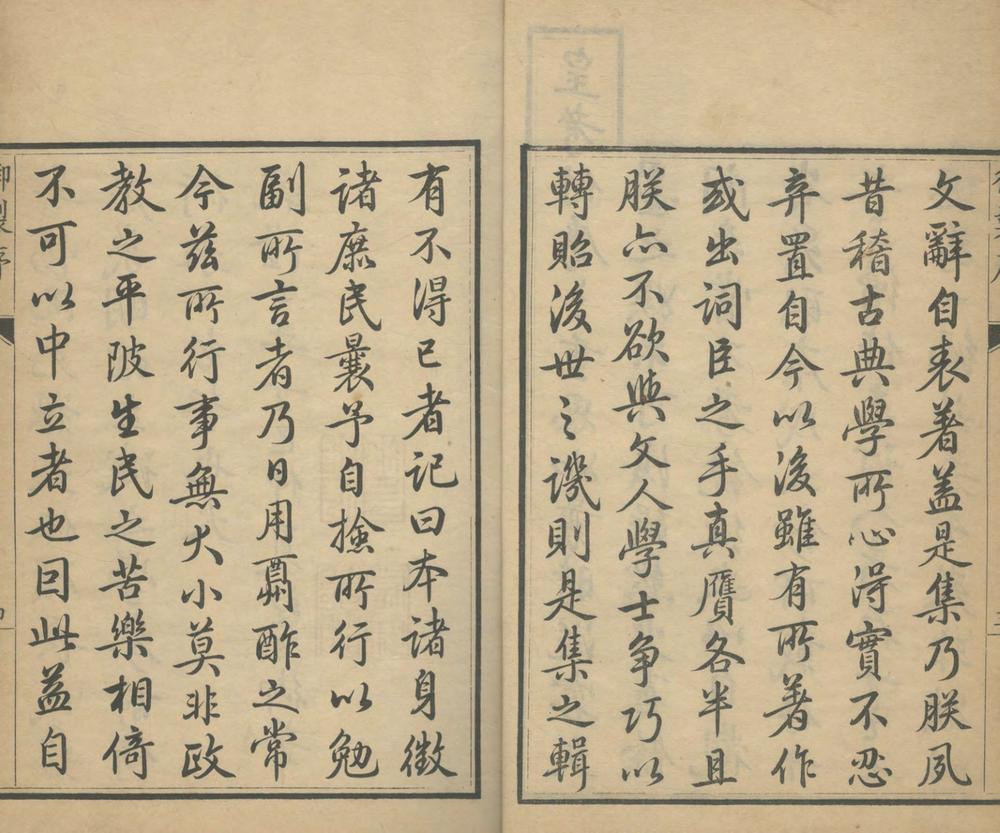 文辭自表著蓋是集乃朕夙
昔稽古典學所心得實不忍
弃置自今以後雖有所著作
或出詞臣之手真贋各半且
朕亦不欲與文人學士爭巧以
轉貽後世之譏則是集之輯
有不得已者記曰本諸身徵
諸庶民曩予自撿所行以勉
副所言者乃日用酬酢之常
今茲所行事無大小莫非政
教之平陂生民之苦樂相倚
不可以中立者也因此益自
御製序